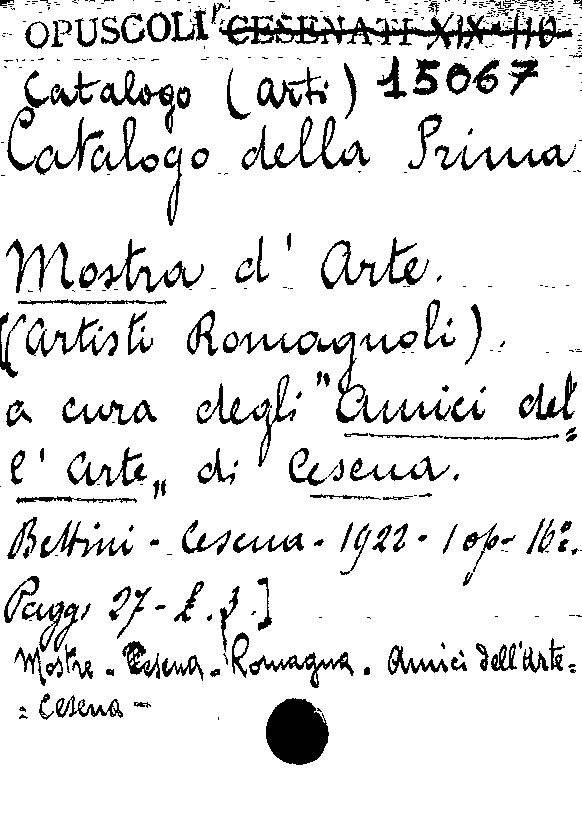 OPUSCOLI CESENATI XIX-110
Catalogo (arti) 15067
Catalogo della Prima
Mostra d'Arte.
(Artisti Romagnoli).
a cura degli "Amici del=
l'Arte„ di Cesena.
Bettini - Cesena - 1922 - 1 op - 16º.
Pagg. 27 - £. 3.]
Mostre - Cesena - Romagna. Amici dell'Arte=
= Cesena -